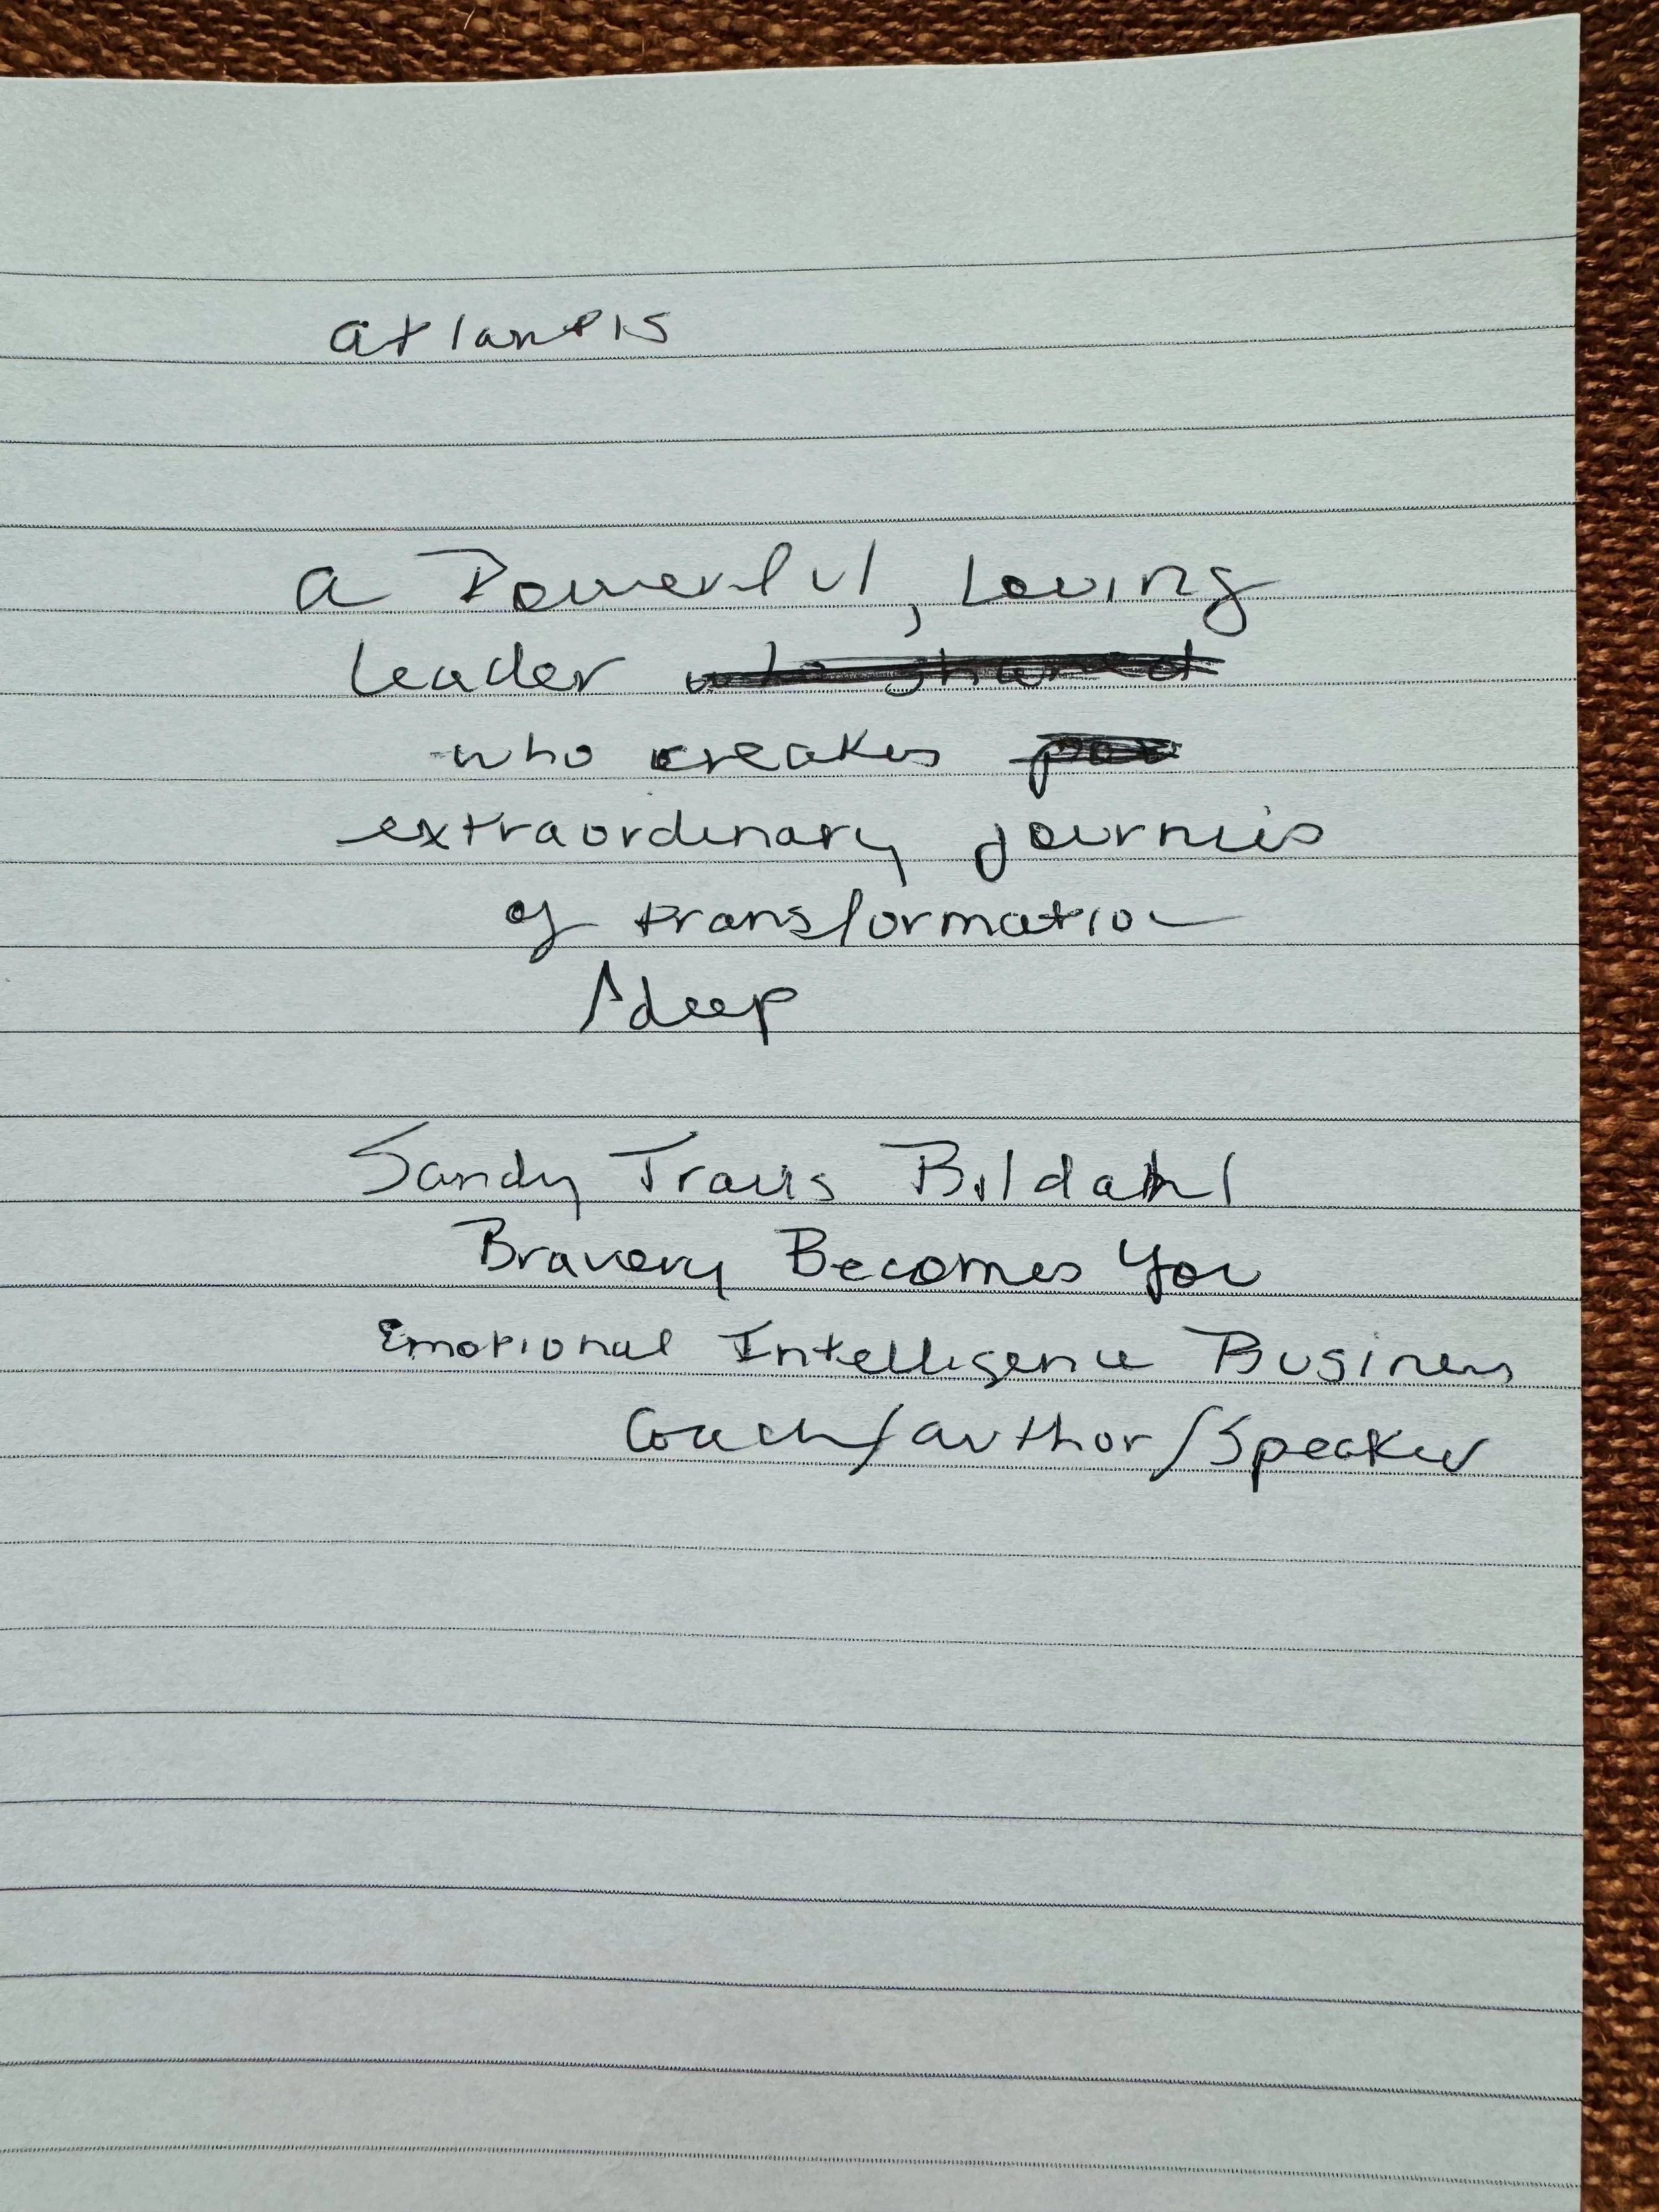 Atlantis
A Powerful, Loving
Leader who shared
who creates
extraordinary journies
of transformation
deep
Sandy Travis Bildahl
Bravery Becomes You
Emotional Intelligence Business
Coach/author/Speaker